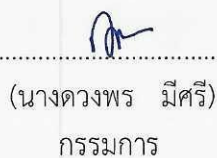 (นางดวงพร มีศรี)
กรรมการ